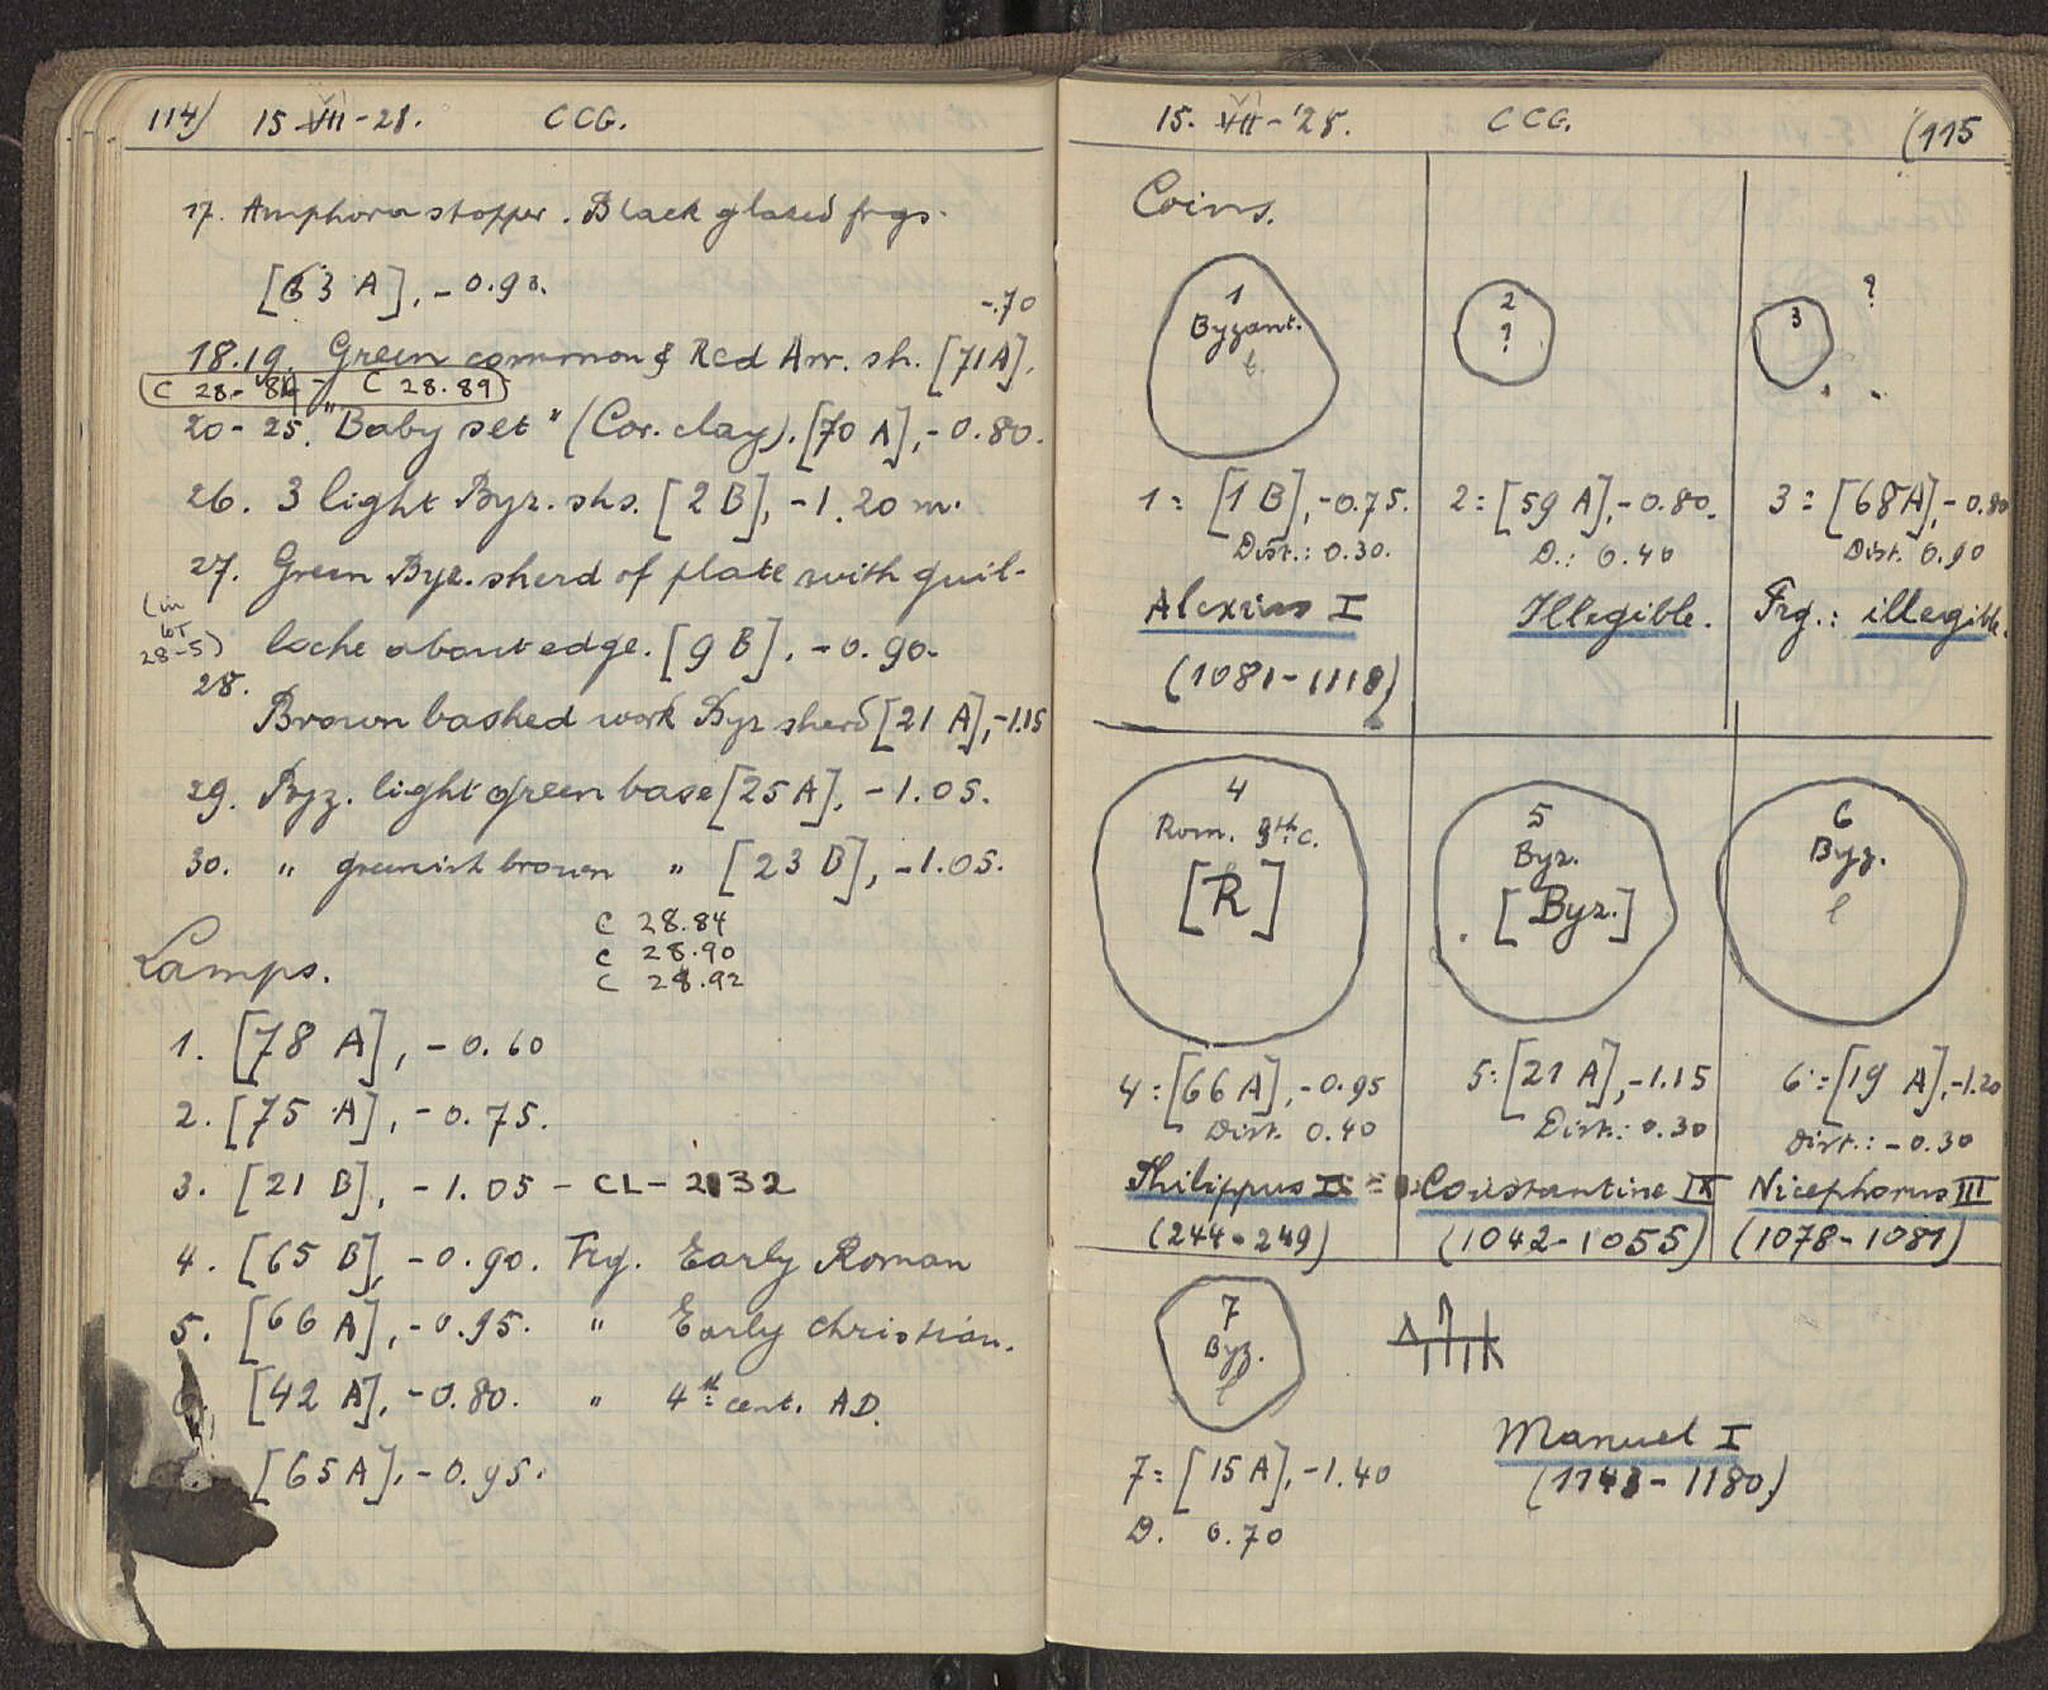 114) 15 VII-28. CCG.
17. Amphora stopper. Black glazed frgs.
[63 A], -0.90.
-.70
18.19. Green common & Red Arr. sh. [71A].
C 28-84 - C 28.89
20-25. "Baby set" (Cor. clay). [70 A], -0.80.
26. 3 light Byz. shs. [2 B], -1.20 m.
27. Green Byz. sherd of plate with guil-
(in
loche about edge. [9 B], -0.90.
LOT
28-5)
28.
Brown bashed work Byz sherd [21 A], -1.15
29. Byz. light green base [25 A], -1.05.
30. " greenish brown " [23 B], -1.05.
C 28.84
C 28.90
C 28.92
Lamps.
1. [78 A], -0.60
2. [75 A], -0.75.
3. [21 B], -1.05 - CL-2132
4. [65 B], -0.90. Frg. Early Roman
5. [66 A], -0.95. " Early Christian.
6. [42 A], -0.80. " 4th cent. AD.
[65 A], -0.95.
15. VII-'28. CCG. (115
Coins.
1
Byzant.
2
?
3
?
1= [1 B], -0.75.
Dist.: 0.30.
Alexius I
(1081-1118)
2= [59 A], -0.80.
D.: 0.40
Illegible.
3= [68A], -0.80
Dist. 0.90
Frg.: illegible.
4
Rom. 3th C.
[R]
5
Byz.
[Byz.]
6
Byz.
4=[66 A], -0.95
Dist. 0.40
Philippus I
(244-249)
5:[21 A], -1.15
Dist.: 0.30
Constantine IX
(1042-1055)
6:=[19 A], -1.20
Dist.: -0.30
Nicephorus III
(1078-1081)
7
Byz.
7= [15 A], -1.40
D. 0.70
Manuel I
(1143-1180)